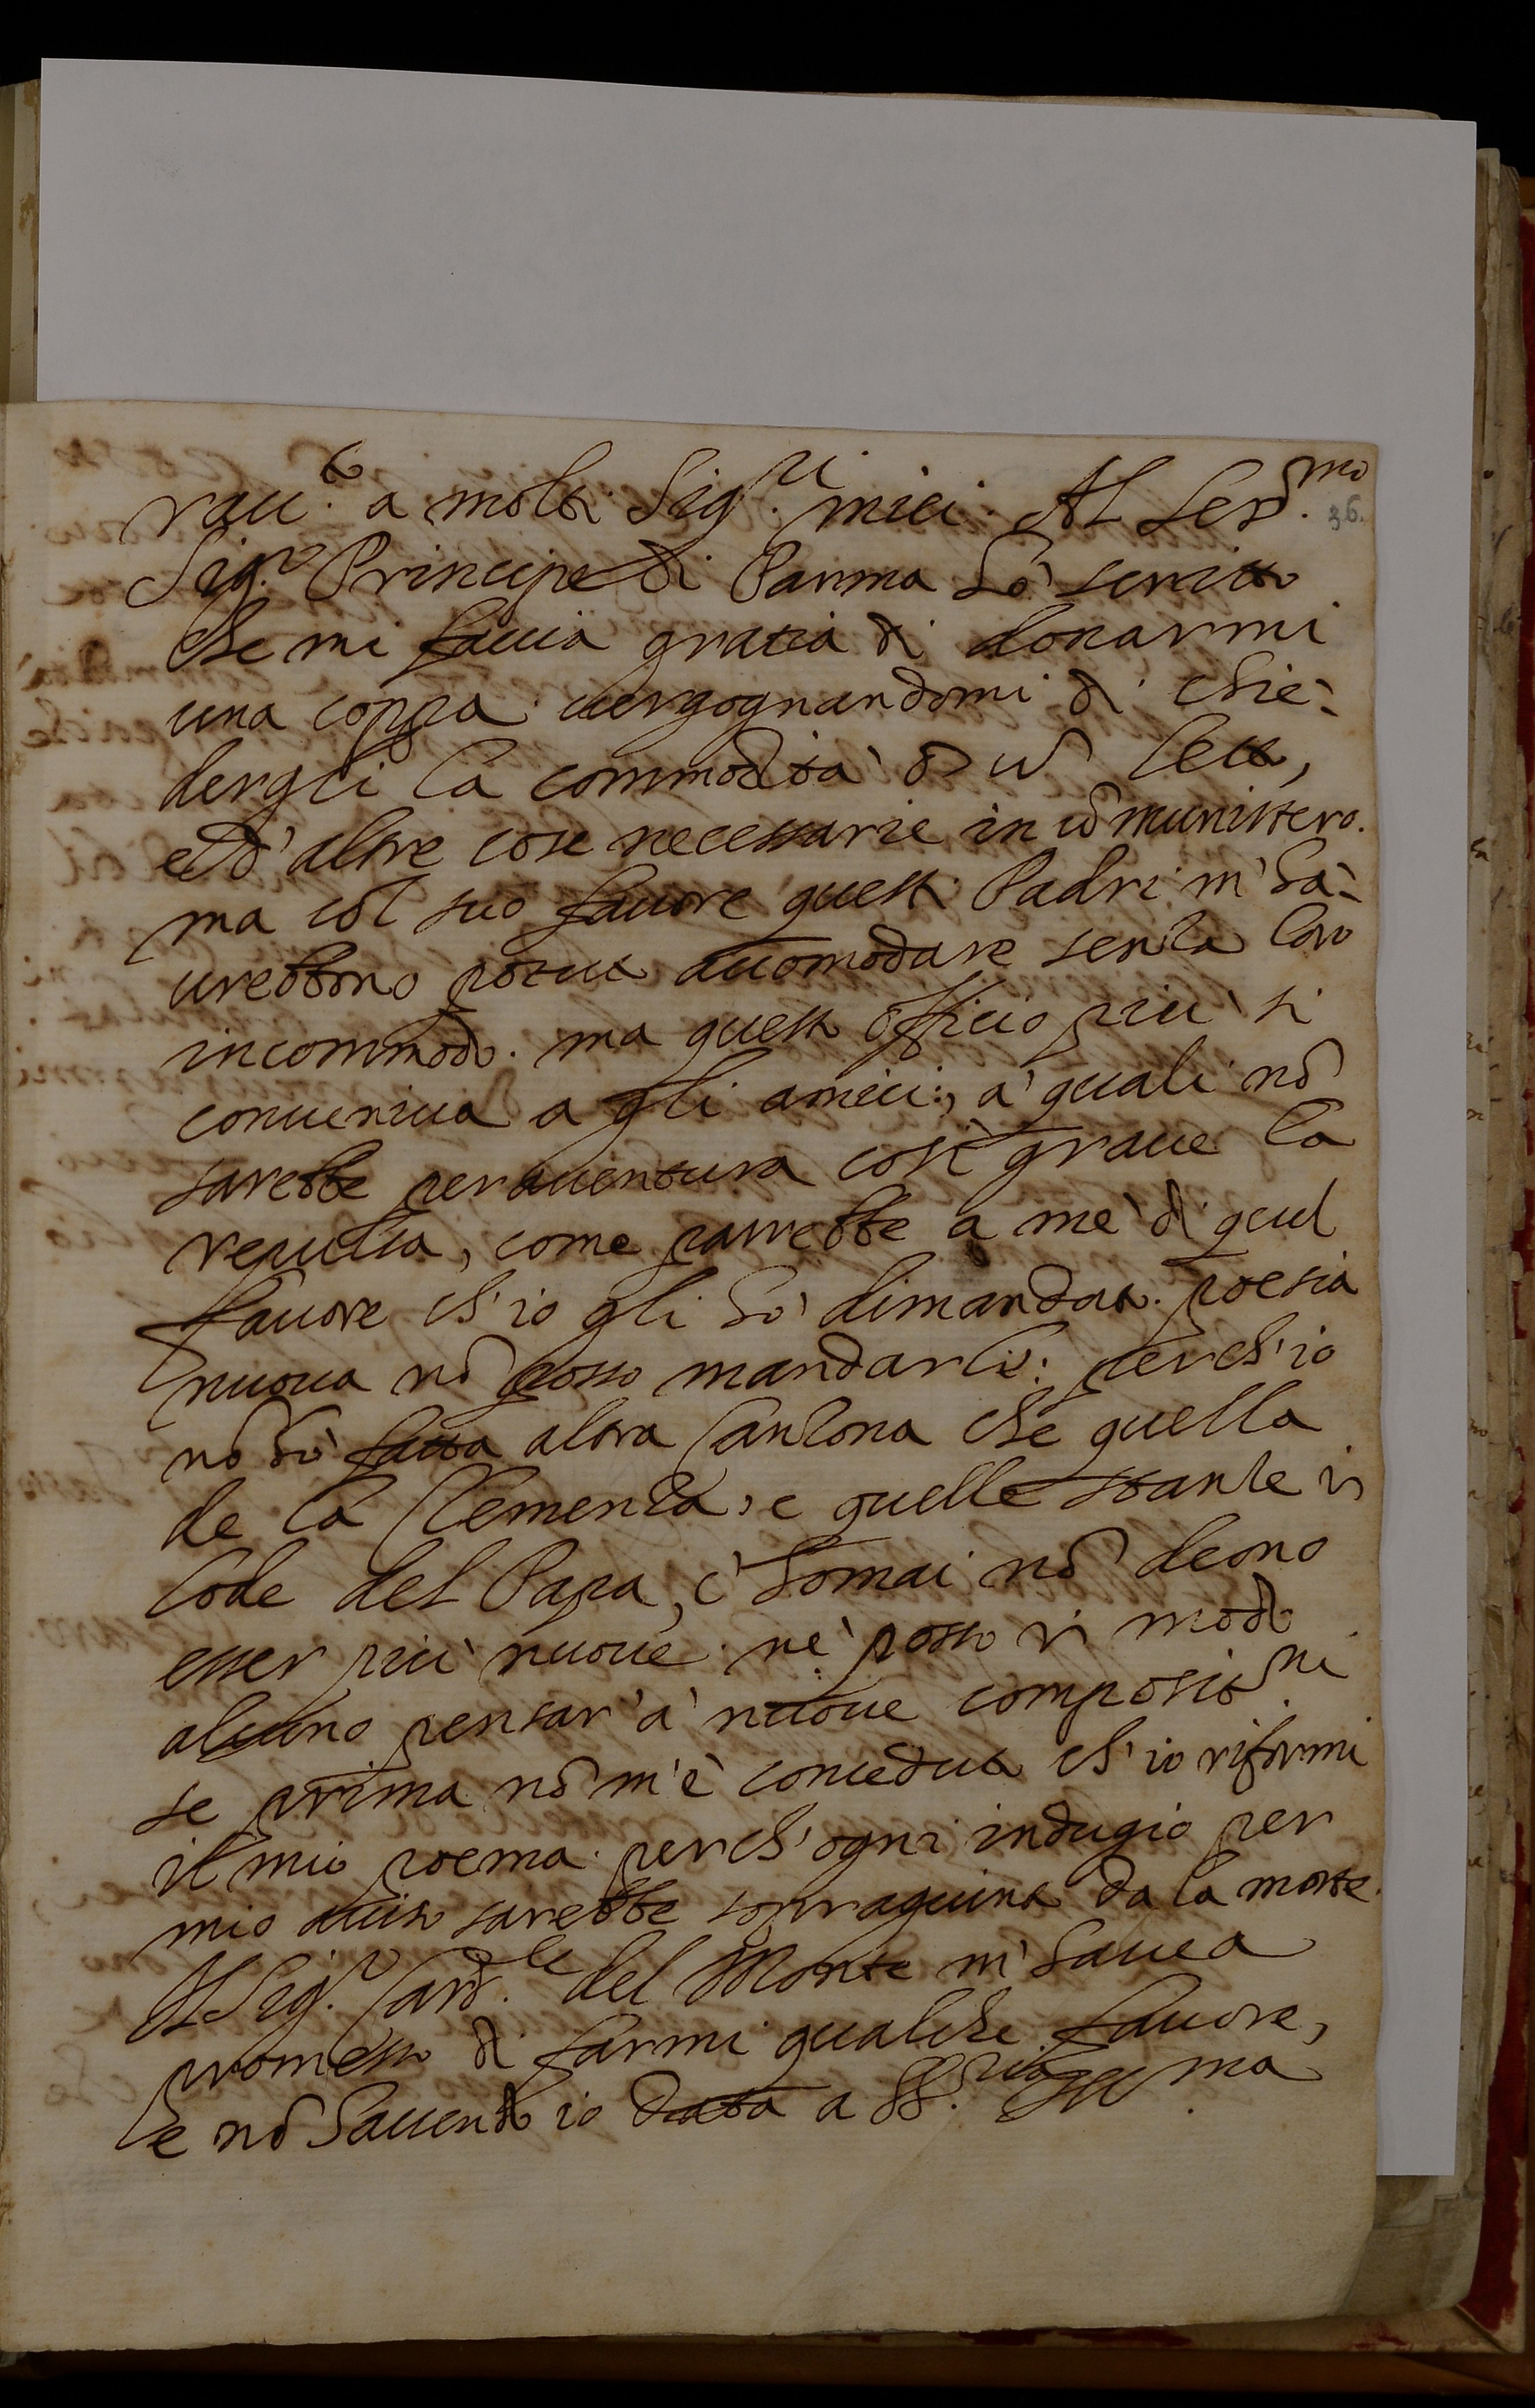 racc.to a molti Sig.ri miei. Al Ser.mo
36.
Sig.r Principe di Parma hò scritto
che mi faccia gratia di donarmi
una coppa vergognandomi di chie-
dergli la commodità d'ũ letto,
ed d'altre cose necessarie in ũ munistero.
ma col suo favore questi Padri m'ha-
vrebbono potuto accomodare senza loro
incommodo. ma questo officio più si
conveniva a gli amici, a' quali nõ
sarebbe peravventura così grave la
repulsa, come parrebbe a me di quel
favore ch'io gli hò dimandato. poesia
nuova nõ posso mandarle: perch'io
nõ hò fatta altra Canzona che quella
de la Clemenza, e quelle stanze ĩ
lode del Papa, c'homai nõ deono
esser più nuove. nè posso ĩ modo
alcuno pensar' a' nuove compositioni
se prima nõ m'è conceduto ch'io riformi
il mio poema. perch'ogni indugio per
mio aviso sarebbe sopragiunto da la morte.
Il Sig.r Card.le del Monte m'havea
promesso di farmi qualche favore,
e nõ havendo io data a S.S.ria Ill.ma